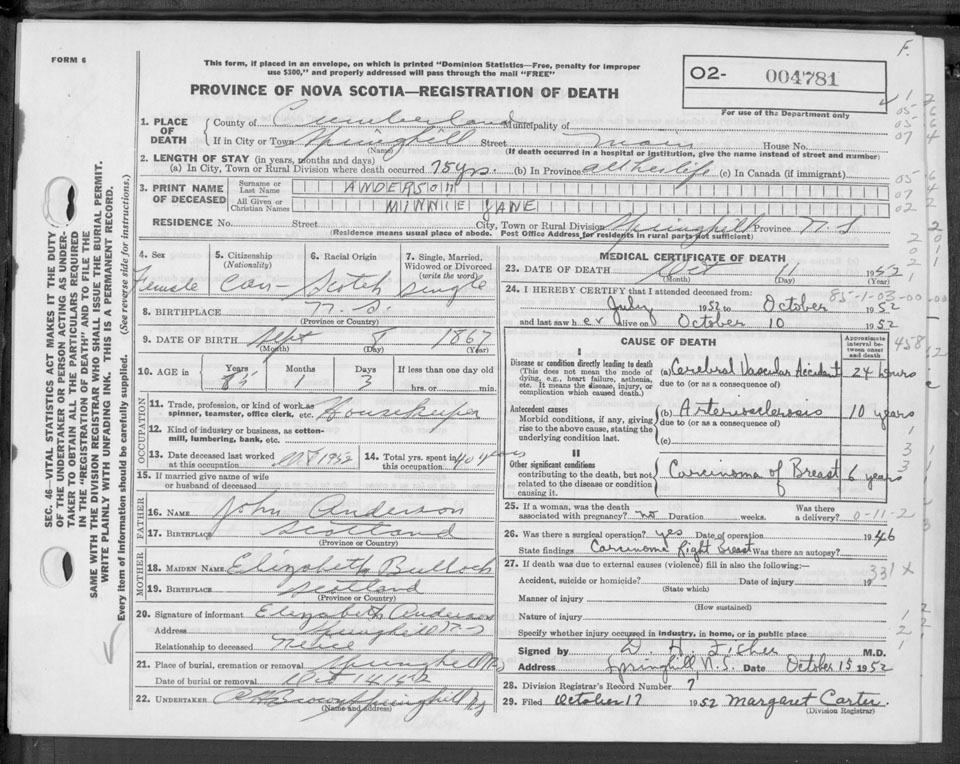 FORM 6
F.
This form, if placed in an envelope, on which is printed "Dominion Statistics—Free, penalty for improper
use $300," and properly addressed will pass through the mail "FREE"
PROVINCE OF NOVA SCOTIA—REGISTRATION OF DEATH
O2- 004781
For use of the Department only
1. PLACE OF DEATH
County of Cumberland Municipality of
If in City or Town Springhill Street Main House No.
(Name) (If death occurred in a hospital or institution, give the name instead of street and number)
2. LENGTH OF STAY (in years, months and days)
(a) In City, Town or Rural Division where death occurred 75 yrs. (b) In Province all her life (c) In Canada (if immigrant)
3. PRINT NAME OF DECEASED
Surname or Last Name ANDERSON
All Given or Christian Names MINNIE JANE
RESIDENCE No. Street City, Town or Rural Division Springhill Province N.S
(Residence means usual place of abode. Post Office Address for residents in rural parts not sufficient)
4. Sex Female
5. Citizenship (Nationality) Can-
6. Racial Origin Scotch
7. Single, Married, Widowed or Divorced (write the word) Single
8. BIRTHPLACE N.S.
(Province or Country)
9. DATE OF BIRTH Sept 8 1867
(Month) (Day) (Year)
10. AGE in Years 85 Months 1 Days 3 If less than one day old
hrs. or min.
OCCUPATION
11. Trade, profession, or kind of work as spinner, teamster, office clerk, etc. Housekeeper
12. Kind of industry or business, as cotton-mill, lumbering, bank, etc.
13. Date deceased last worked at this occupation Oct 1952
14. Total yrs. spent in this occupation 40 years
15. If married give name of wife or husband of deceased
FATHER
16. NAME John Anderson
17. BIRTHPLACE Scotland
(Province or Country)
MOTHER
18. MAIDEN NAME Elizabeth Bulloch
19. BIRTHPLACE Scotland
(Province or Country)
20. Signature of informant Elizabeth Anderson
Address Springhill N-S
Relationship to deceased Neice
21. Place of burial, cremation or removal Springhill
Date of burial or removal Oct 14 1952
22. UNDERTAKER Brown Springhill
(Name and address)
MEDICAL CERTIFICATE OF DEATH
23. DATE OF DEATH Oct 11 1952
(Month) (Day) (Year)
24. I HEREBY CERTIFY that I attended deceased from: 85-1-03-00
July 1952 to October 1952
and last saw her alive on October 10 1952
CAUSE OF DEATH
Approximate interval between onset and death
I
Disease or condition directly leading to death
(This does not mean the mode of dying, e.g., heart failure, asthenia, etc. It means the disease, injury, or complication which caused death.)
(a) Cerebral Vascular Accident 24 hours
due to (or as a consequence of)
Antecedent causes
Morbid conditions, if any, giving rise to the above cause, stating the underlying condition last.
(b) Arteriosclerosis 10 years
due to (or as a consequence of)
(c)
II
Other significant conditions
contributing to the death, but not related to the disease or condition causing it.
Carcinoma of Breast 6 years
25. If a woman, was the death associated with pregnancy? no Duration weeks. Was there a delivery? 0-11-2
26. Was there a surgical operation? yes Date of operation 1946
State findings Carcinoma Right Breast Was there an autopsy?
27. If death was due to external causes (violence) fill in also the following:—
331 X
Accident, suicide or homicide? Date of injury 19
(State which)
Manner of injury
(How sustained)
Nature of injury
Specify whether injury occurred in industry, in home, or in public place
Signed by D. H. Fisher M.D.
Address Springhill, N.S. Date October 15 1952
28. Division Registrar's Record Number 7
29. Filed October 17 1952 Margaret Carter
(Division Registrar)
SEC. 46—VITAL STATISTICS ACT MAKES IT THE DUTY
OF THE UNDERTAKER OR PERSON ACTING AS UNDER-
TAKER TO OBTAIN ALL THE PARTICULARS REQUIRED
IN THE "REGISTRATION OF DEATH" AND TO FILE THE
SAME WITH THE DIVISION REGISTRAR WHO SHALL ISSUE THE BURIAL PERMIT.
WRITE PLAINLY WITH UNFADING INK. THIS IS A PERMANENT RECORD.
Every item of information should be carefully supplied. (See reverse side for instructions.)